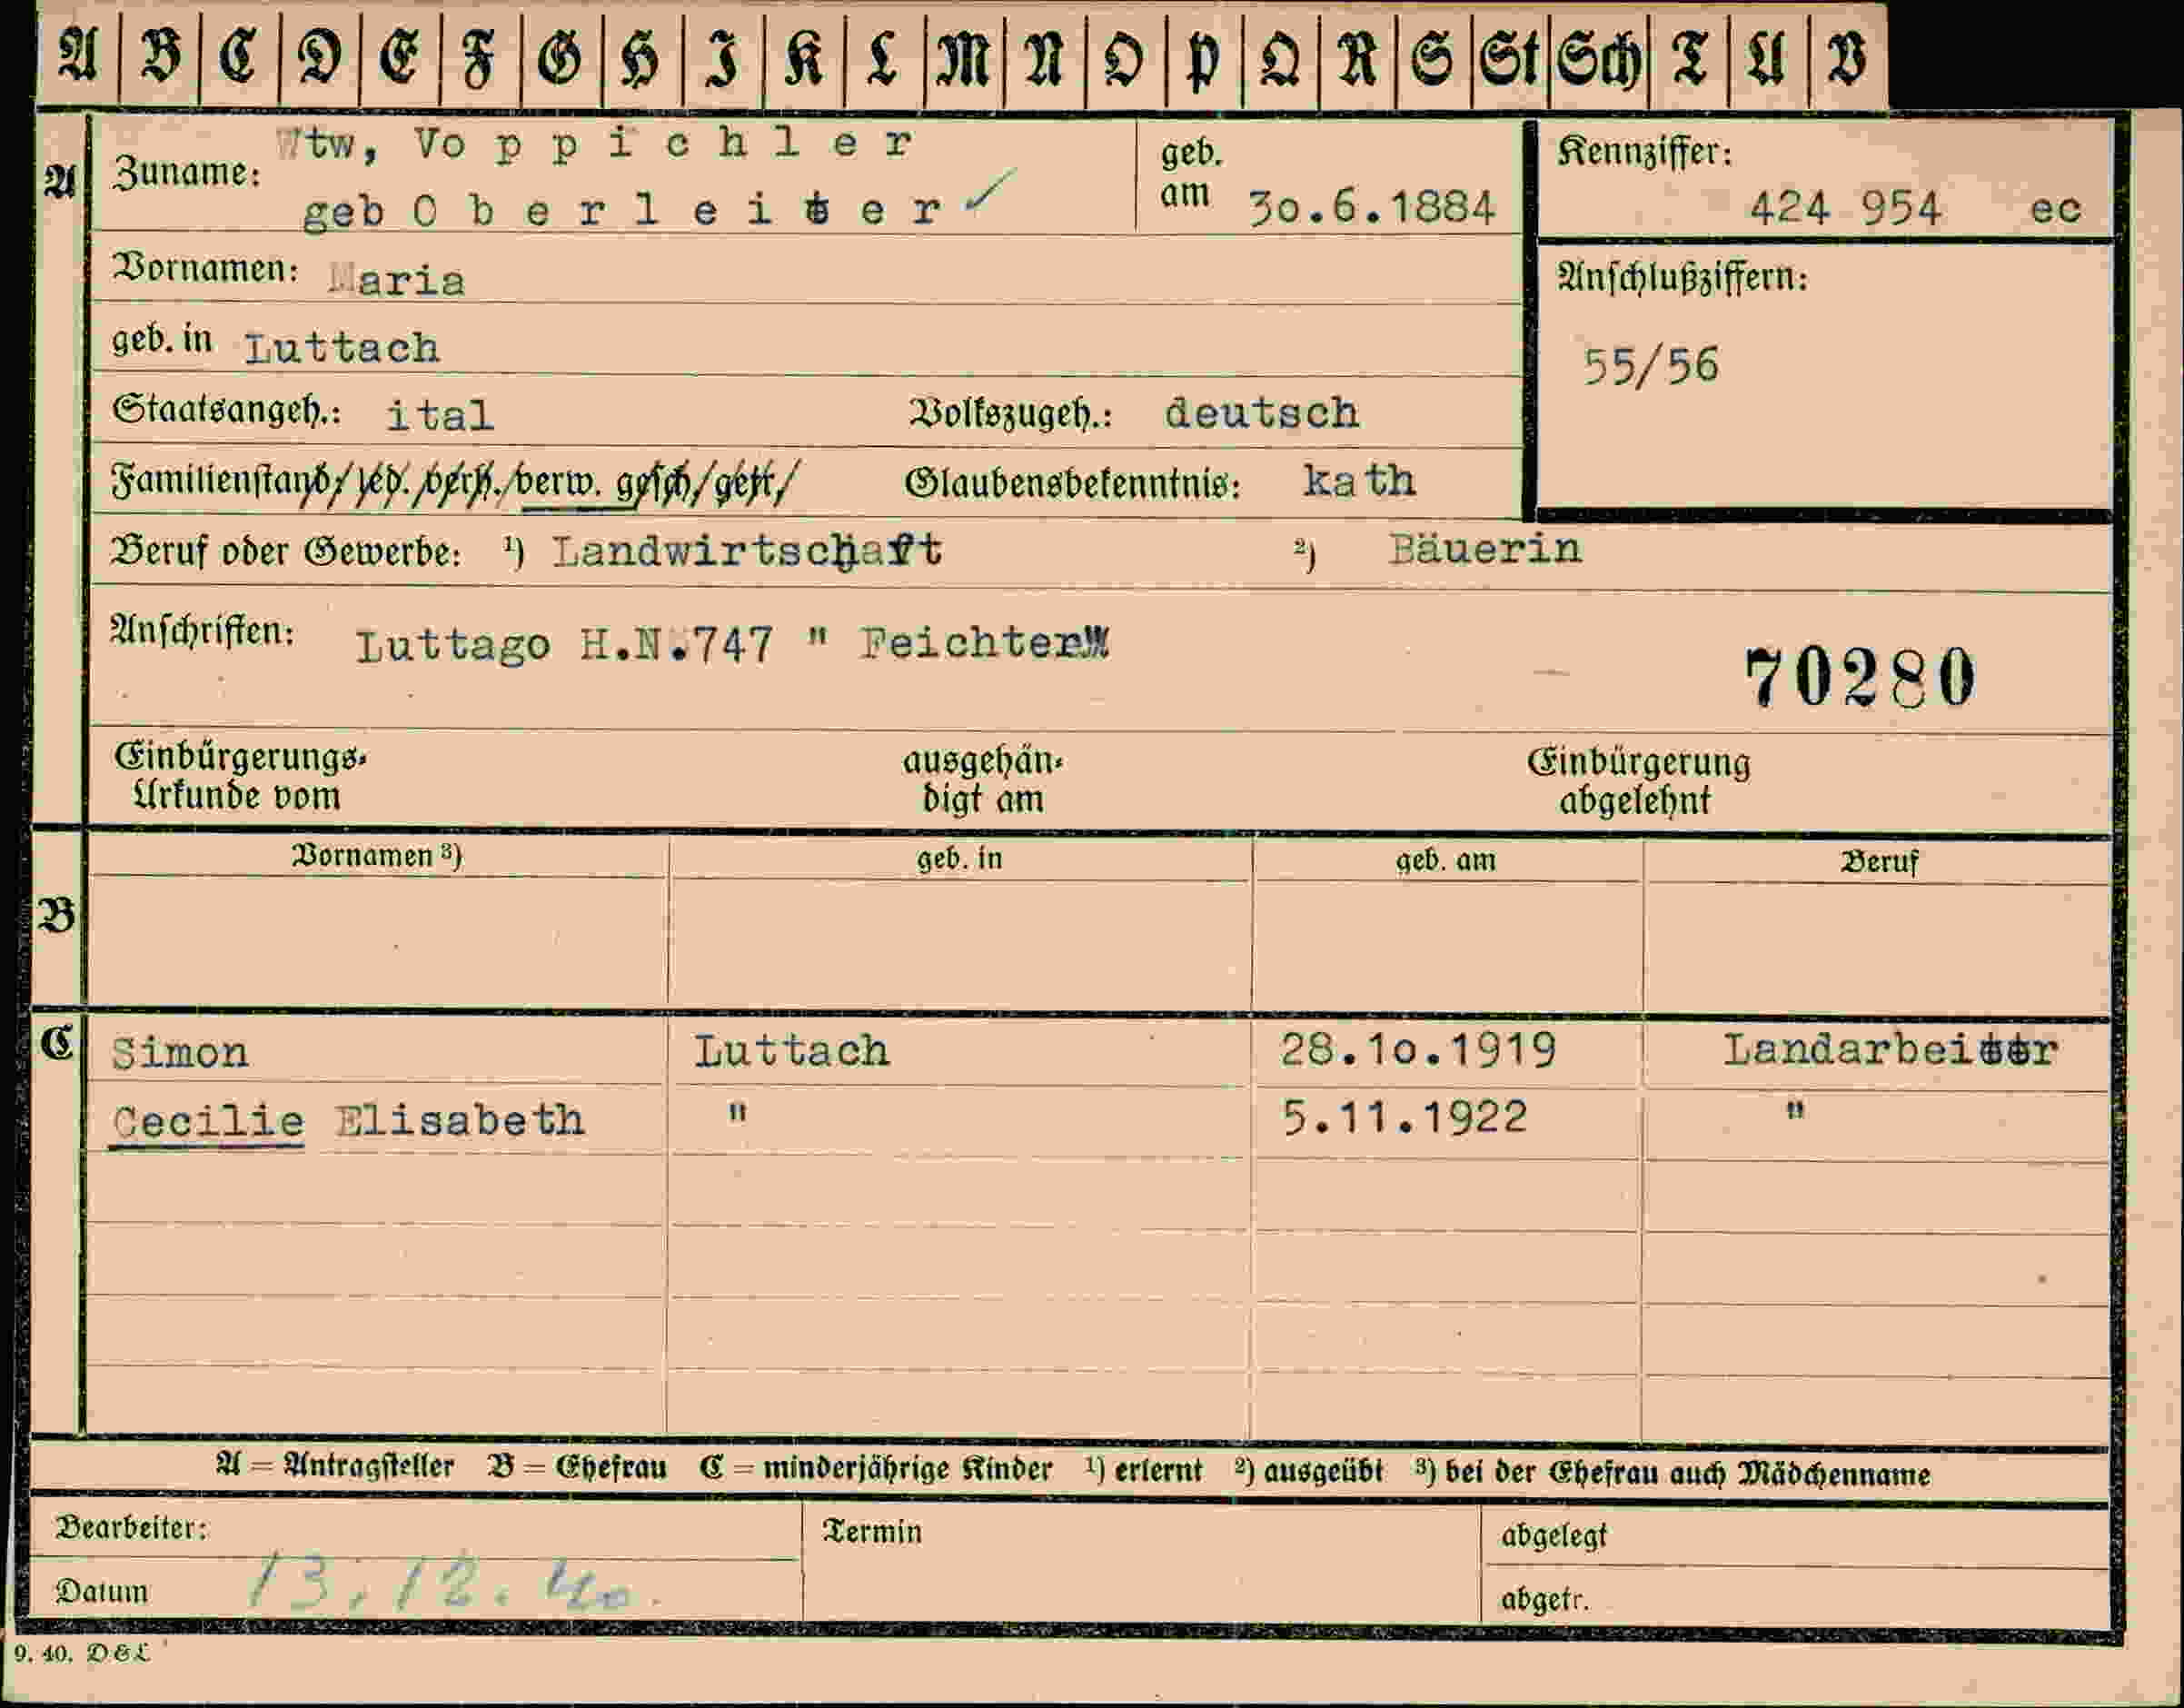 A B C D E F G H I K L M N O P Q R S St Sch T U V
A Zuname: Wtw, Voppichler
geb Oberleiter
geb. am 30.6.1884
Kennziffer: 424 954 ec
Vornamen: Maria
Anschlußziffern:
geb. in Luttach
55/56
Staatsangeh.: ital Volkszugeh.: deutsch
Familienstand/ led. verh. verw. gesch/getr/ Glaubensbekenntnis: kath
Beruf oder Gewerbe: ¹) Landwirtschaft ²) Bäuerin
Anschriften: Luttago H.N.747 " Feichter"
70280
Einbürgerungs-Urkunde vom ausgehän-digt am Einbürgerung abgelehnt
Vornamen ³) geb. in geb. am Beruf
B
C Simon Luttach 28.10.1919 Landarbeiter
Cecilie Elisabeth " 5.11.1922 "
A = Antragsteller B = Ehefrau C = minderjährige Kinder ¹) erlernt ²) ausgeübt ³) bei der Ehefrau auch Mädchenname
Bearbeiter: Termin abgelegt
Datum 13.12.40. abgetr.
9. 40. D&L